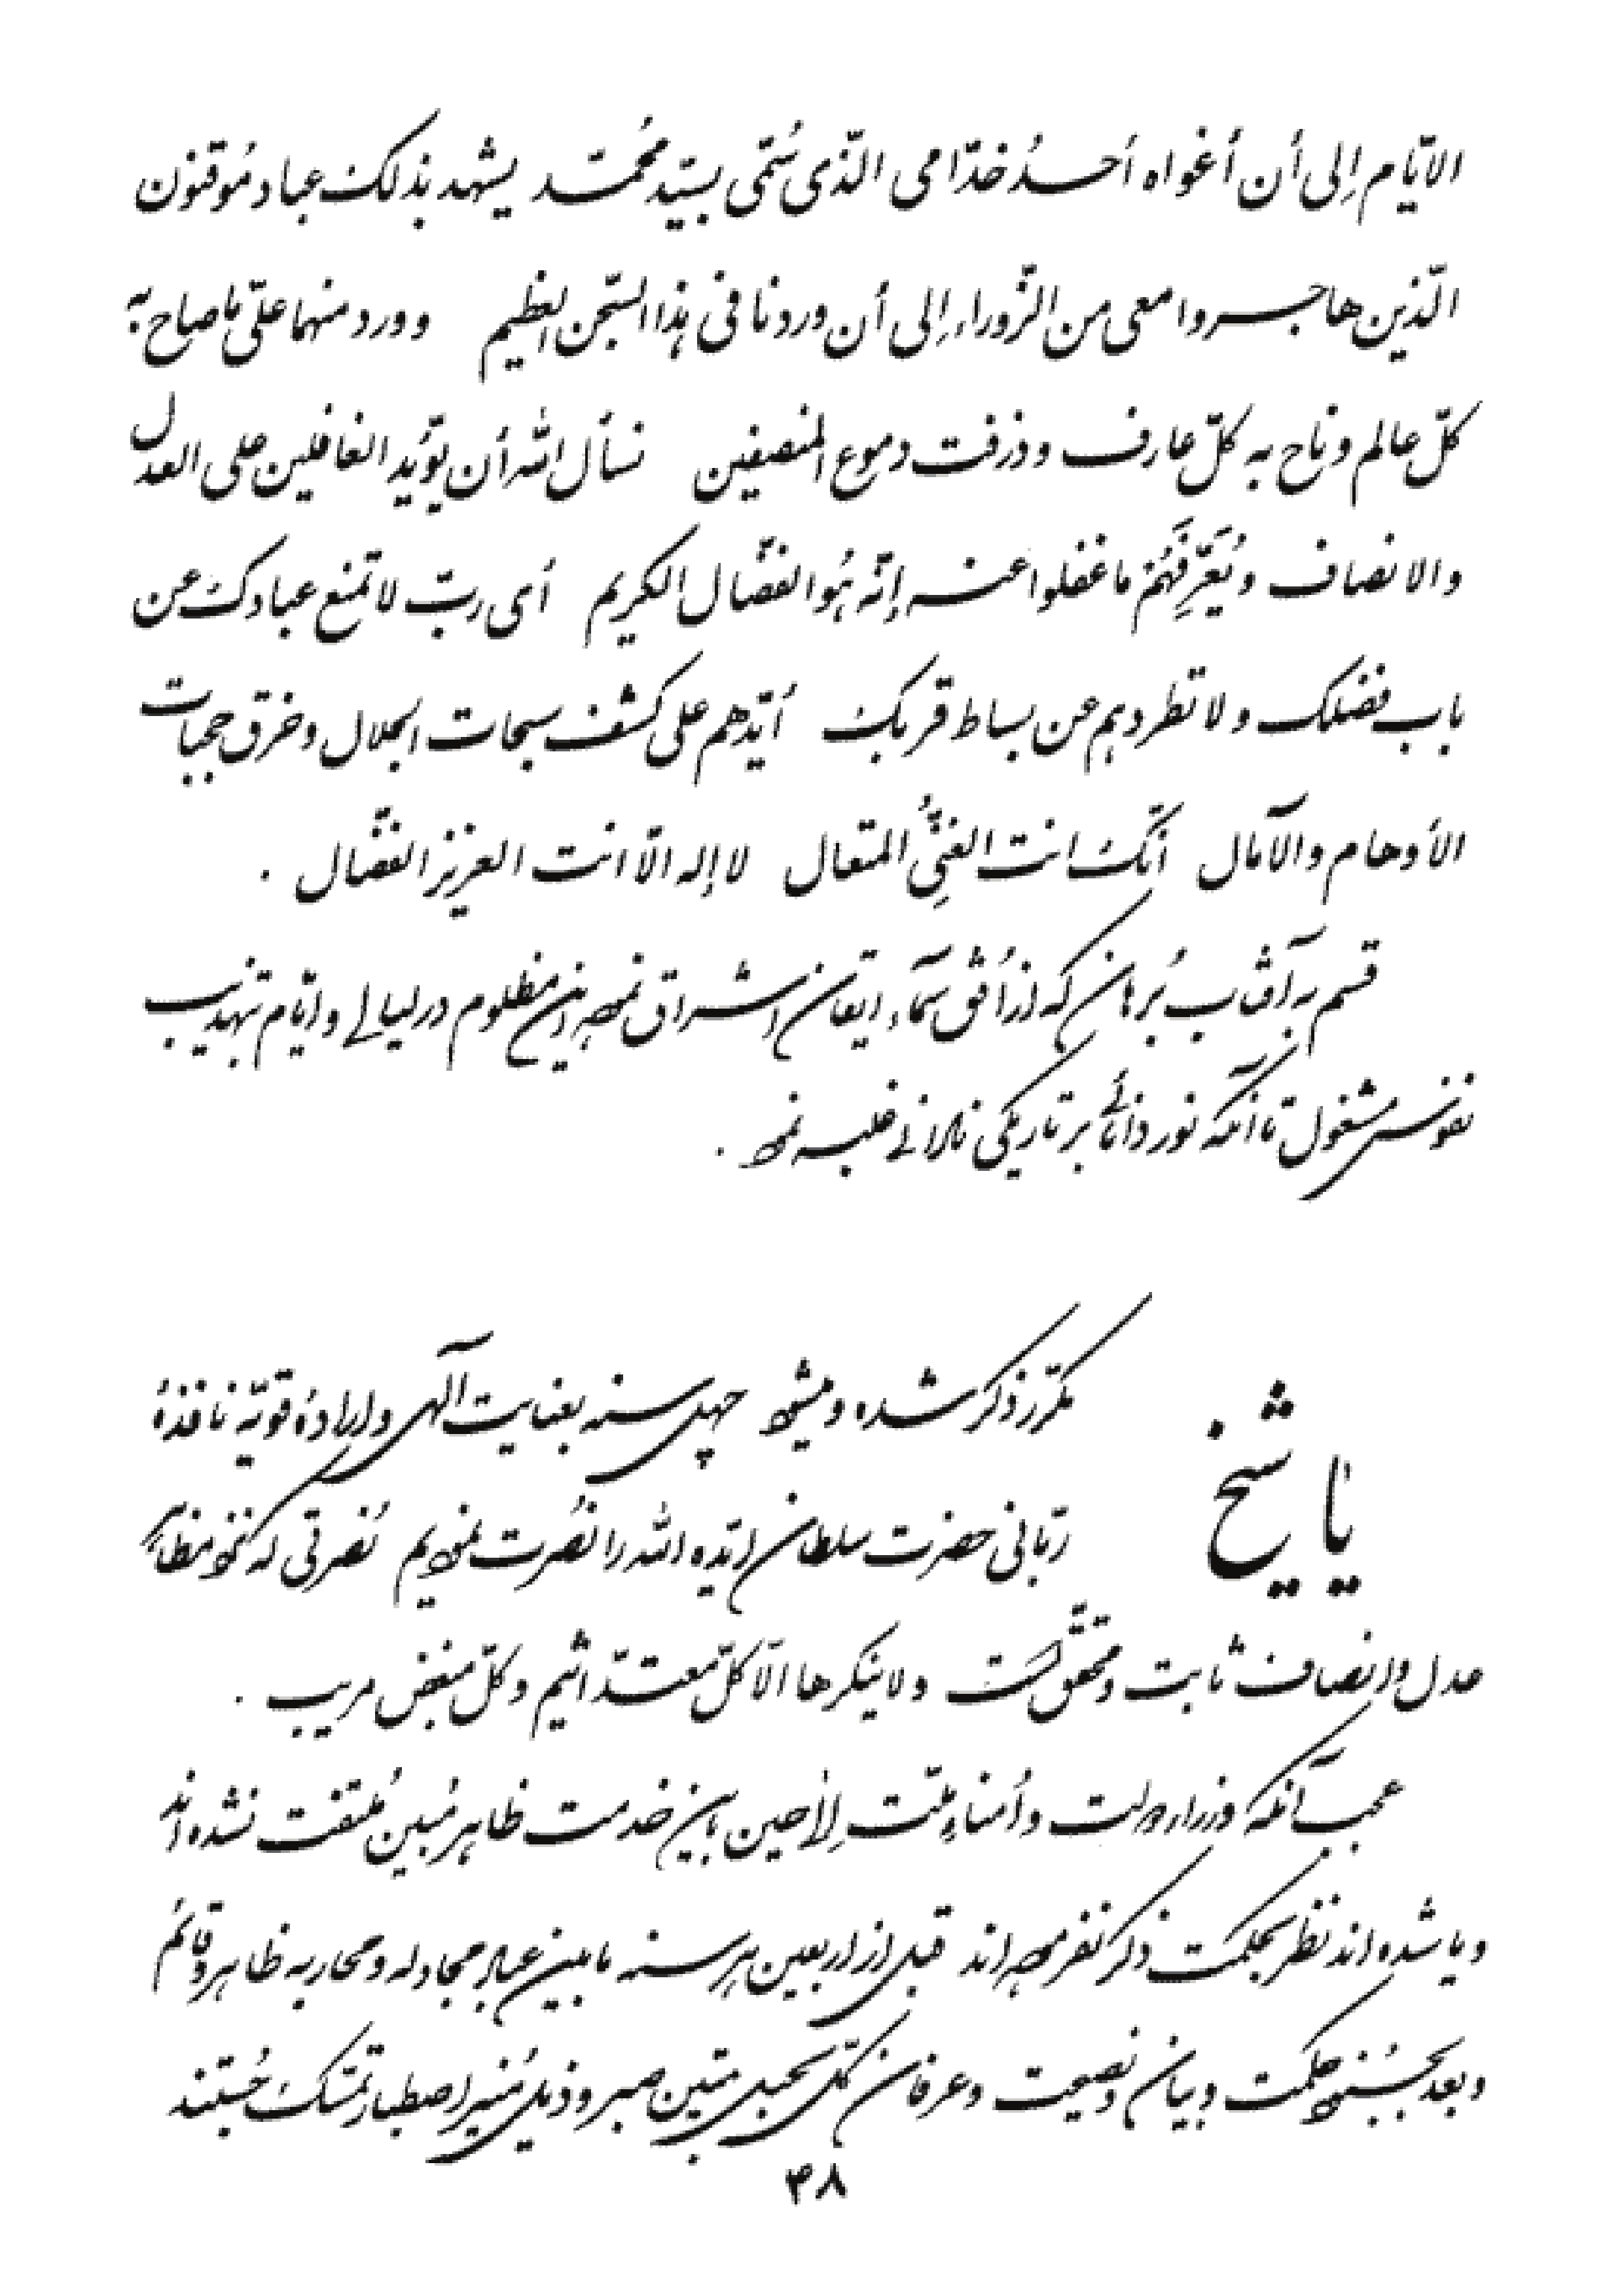 الایّام إلی أن أغواه أحدُ خدّامی الّذی سُمّی بسیّد محُمّد یشهد بذلک عباد مُوقنون
الّذین هاجروا معی من الزّوراء إلی أن وردنا فی هذا السّجن العظیم و ورد منهما علیّ ما صاح به
کلّ عالم و ناح به کلّ عارف و ذرفت دموع المنصفین نسأل الله أن یؤیّد الغافلین علی العدل
والانصاف و یُعَرِّفَهُم ما غفلوا عنه إنّه هُو الفضّال الکریم أی ربّ لا تمنع عبادک عن
باب فضلک و لا تطردهم عن بساط قربک أیّدهم علی کشف سبحات الجلال و خرق حجبات
الأوهام والآمال انّک انت الغنیُّ المتعال لا إله الّا انت العزیز الفضّال .
قسم به آفتاب بُرهان که از اُفق سمآء ایقان اشراق نموده این مظلوم در لیالی و ایّام بتهذیب
نفوس مشغول تا آنکه نور دانائی بر تاریکی نادانی غلبه نمود .
یا شیخ
مکرّر ذکر شده و میشود چهل سنه بعنایت آلهی و ارادهٔ قویّهٔ نافذهٔ
ربّانی حضرت سلطان ایّده الله را نُصرت نمودیم نُصرتی که نزد مظاهر
عدل و انصاف ثابت و محقّق است و لا ینکرها الّا کلّ معتدّ اثیم و کلّ مبغض مریب .
عجب آنکه وزراء دولت و اُمناءِ ملّت لِالأحین باین خدمت ظاهر مُبین مُلتفت نشده‌اند
و یا شده‌اند نظر بحکمت ذکر نفرموده‌اند قبل از اربعین هر سنه ما بین عباد مجادله و محاربه ظاهر و قائم
و بعد بجُنود حکمت و بیان و نصیحت و عرفان کلّ بحبل متین صبر و ذیل مُنیر اصطبار تمسّک جُستند
۴۸